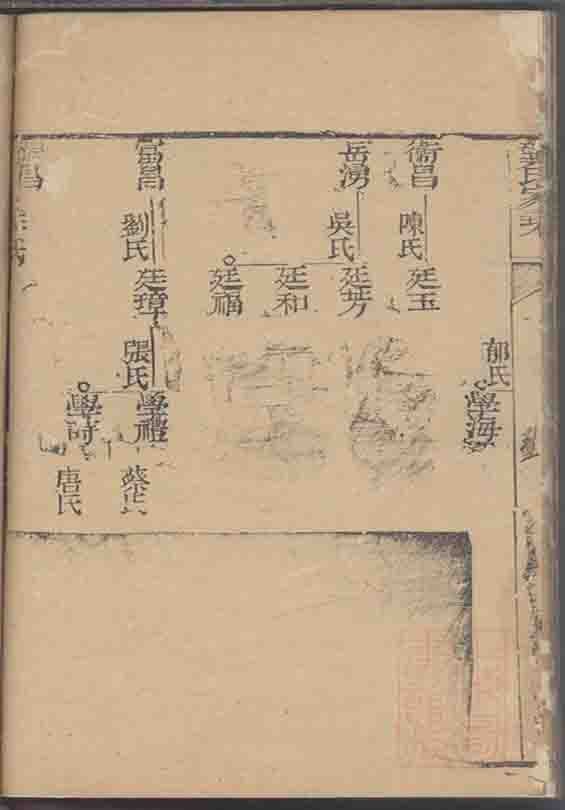 衞昌
陳氏
廷玉
郁氏
學海
岳湧
吳氏
廷芳
廷和
廷福
富昌
劉氏
廷璋
張氏
學禮
蔡氏
學詩
唐氏